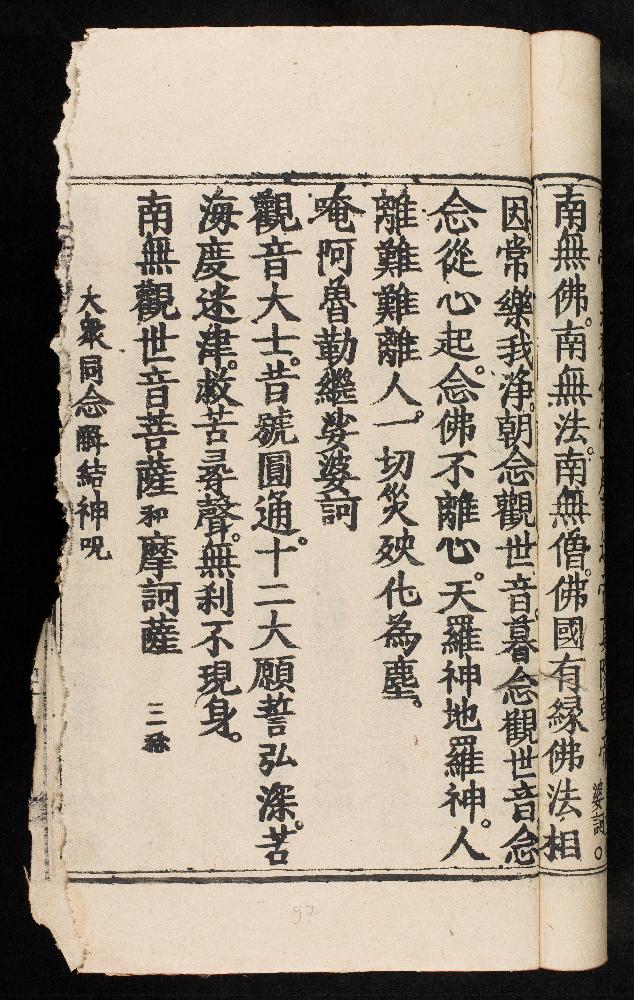 婆訶。
南無佛。南無法。南無僧。佛國有緣佛法相
因。常樂我淨。朝念觀世音。暮念觀世音。念
念從心起。念佛不離心。天羅神地羅神。人
離難難離人。一切災殃化為塵。
唵阿魯勒繼娑婆訶
觀音大士。昔號圓通。十二大願誓弘深。苦
海度迷津。救苦尋聲。無刹不現身。
南無觀世音菩薩和摩訶薩 三稱
大衆同念解結神呪
97